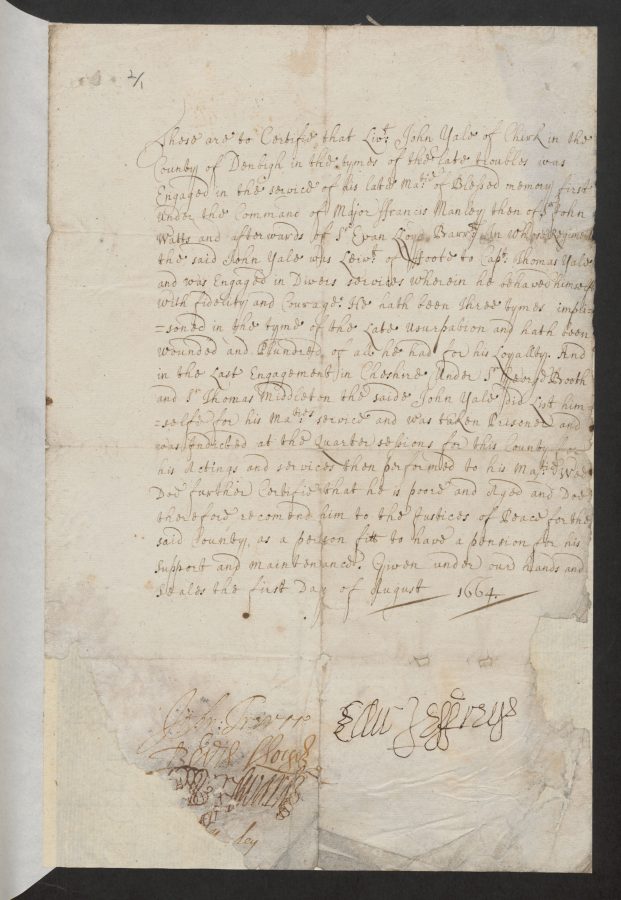 2/1
These are to Certifie that Livt. John Yale of Chirk in the
County of Denbigh in the tymes of the late troubles was
Engaged in the service of his late Matie of Blessed memory first
under the Command of Major ffrancis Manley then of Sr John
Watts and afterwards of Sr Evan Lloyd Barrt in whose Regimt
the said John Yale was Leivt of ffoote to Capt. Thomas Yale
and was Engaged in Divers services wherein he behaved himselfe
with fidelity and Courage. He hath been three tymes impri
=soned in the tyme of the Late usurpation and hath been
wounded and Plundred of all he had for his Loyallty. And
in the Last Engagement in Cheshire under Sr Georg Booth
and Sr Thomas Middleton the saide John Yale did List him
=selfe for his Maties service and was taken Prisoner and
was Indicted at the Quarter sessions for this County for
his Actings and services then performed to his Matie We
Doe further Certifie that he is poore and Aged and Doe
therefore recomend him to the Justices of Peace for the
said County, as a person fitt to have a pension for his
support and maintenance. Given under our hands and
Seales the first Day of August 1664.
Edw Jefferys